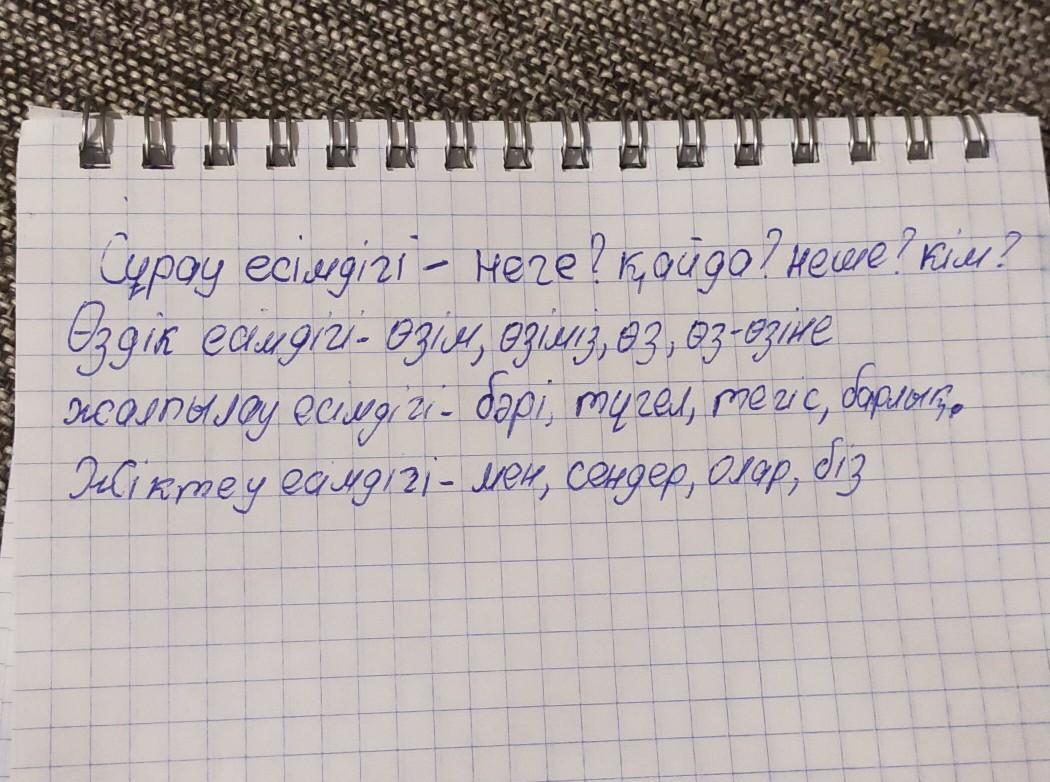 Сұрау есімдігі - неге? қайда? неше? кім?
Өздік есімдігі - өзім, өзіміз, өз, өз-өзіне
жалпылау есімдігі - бәрі, түгел, тегіс, барлық.
Жіктеу есімдігі - мен, сендер, олар, біз